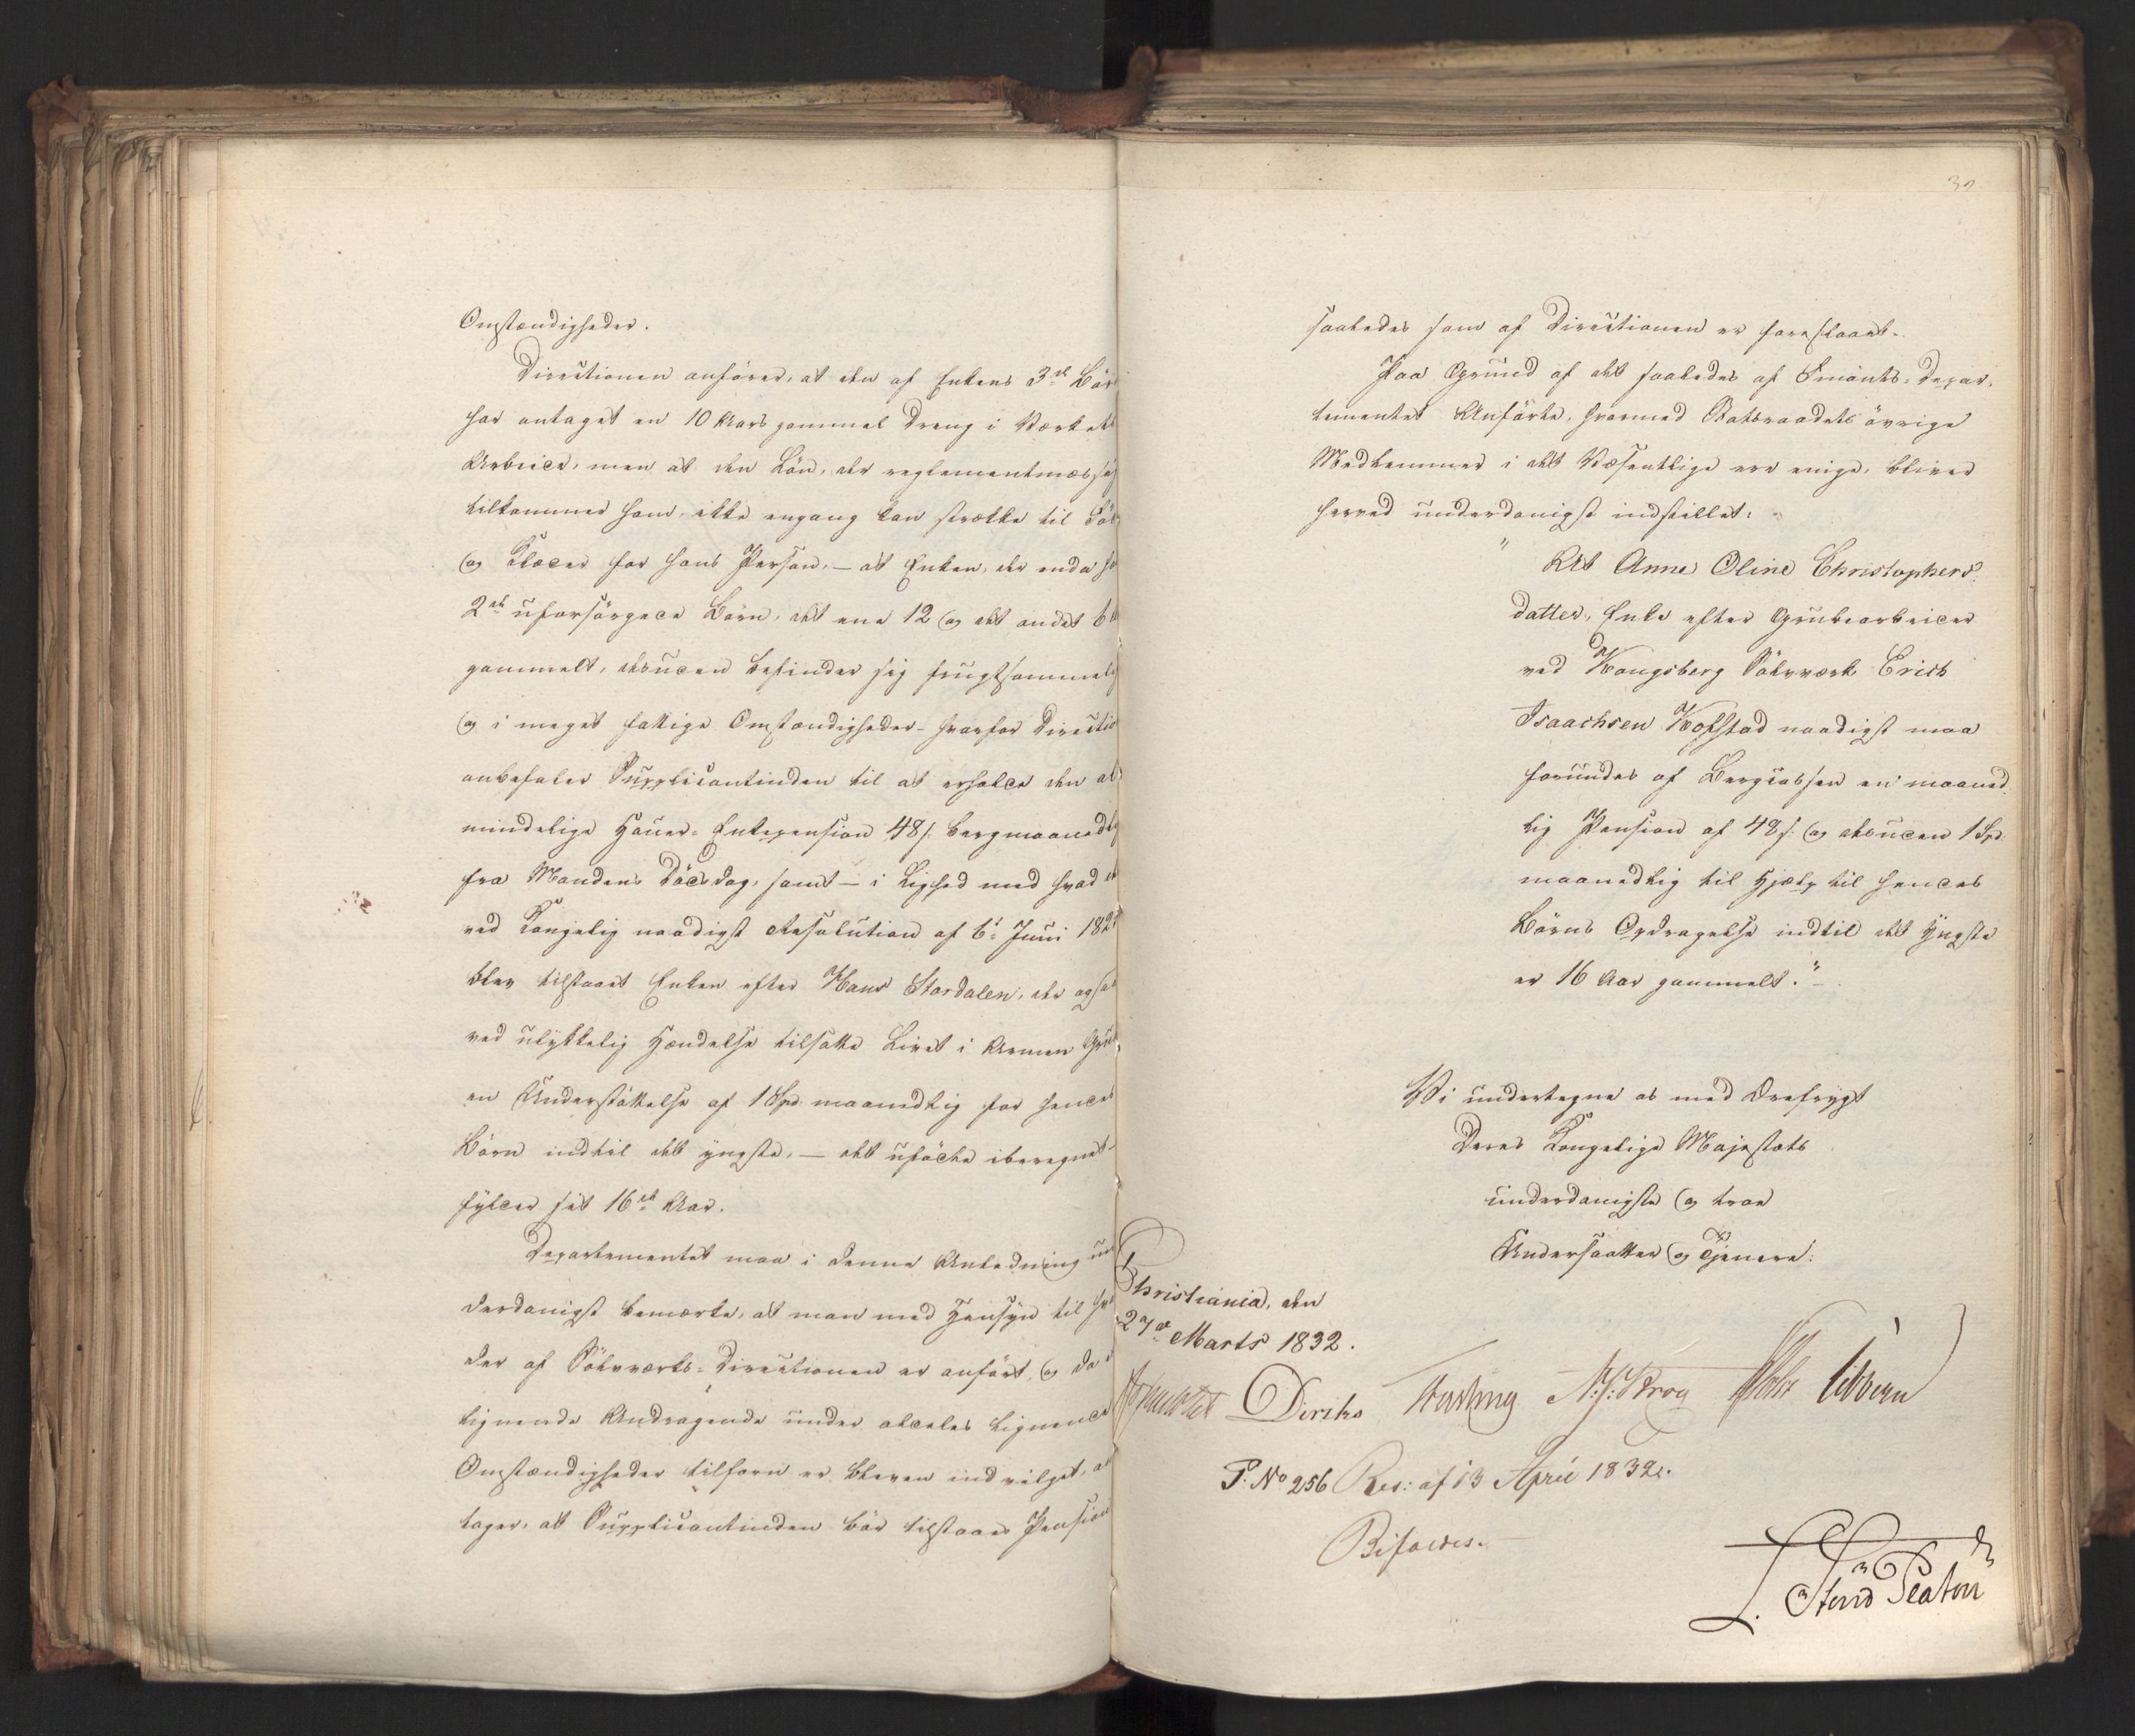 Omstændigheder.
Directionen anfører, at den af Enkens 3de Bør
har antaget en 10 Aars gammel Dreng i Værkets
Arbeide, men at den Løn, der reglementmæssig
tilkommer ham, ikke engang kan strække til Föde
og Klæder for hans Person, – at Enken, der endu ha
2de uforsørgede Børn, det ene 12 og det andet 6
gammelt, desuden befinder sig frugtsommelig
og i meget fattige Omstændigheder – hvorfor Directio
anbefaler Supplicantinden til at erholde den al
mindelige Hauer-Enkepension 48 s. bergmaanedlig
fra Mandens Dödsdag, samt – i Lighed med hvad
ved Kongelig naadigst Resolution af 6te Juni 182
blev tilstaaet Enken efter Hans Stordalen, der ogsaa
ved ulykkelig Hændelse tilsatte Livet i Armen Grub
en Understöttelse af 1 Spd. maanedlig for hendes
Börn indtil det yngste, – det ufödte iberegnet –
fylder sit 16de Aar.
Departementet maa i denne Anledning un
derdanigst bemærke, at man med Hensyn til hva
der af Sölvværks-Directionen er anfört, og da
lignende Andragende under aldeles lignende
Omstændigheder tilforn er bleven indvilget, an
tager, at Supplicantinden bör tilstaaes Pension
saaledes som af Directionen er foreslaaet.
Paa Grund af det saaledes af Finants-Depar-
tementet Anförte, hvormed Statsraadets övrige
Medlemmer i det Væsentlige ere enige, bliver
herved underdanigst indstillet:
"At Anne Oline Christophers-
datter, Enke efter Grubearbeider
ved Kongsberg Sölvværk Erich
Isaachsen Kofstad naadigst maa
forundes af Bergcassen en maaned-
lig Pension af 48 s. og desuden 1 Spd.
maanedlig til Hjælp til hendes
Börns Opdragelse indtil det Yngste
er 16 Aar gammelt." –
Vi undertegne os med Ærefrygt
Deres Kongelige Majestæts
underdanigste og troe
Undersaatter og Tjenere.
Christiania, den
27de Marts 1832.
Diriks N. J. Krog Holst Sibbern
P. No 256 Res: af 13 April 1832.
Bifaldes.